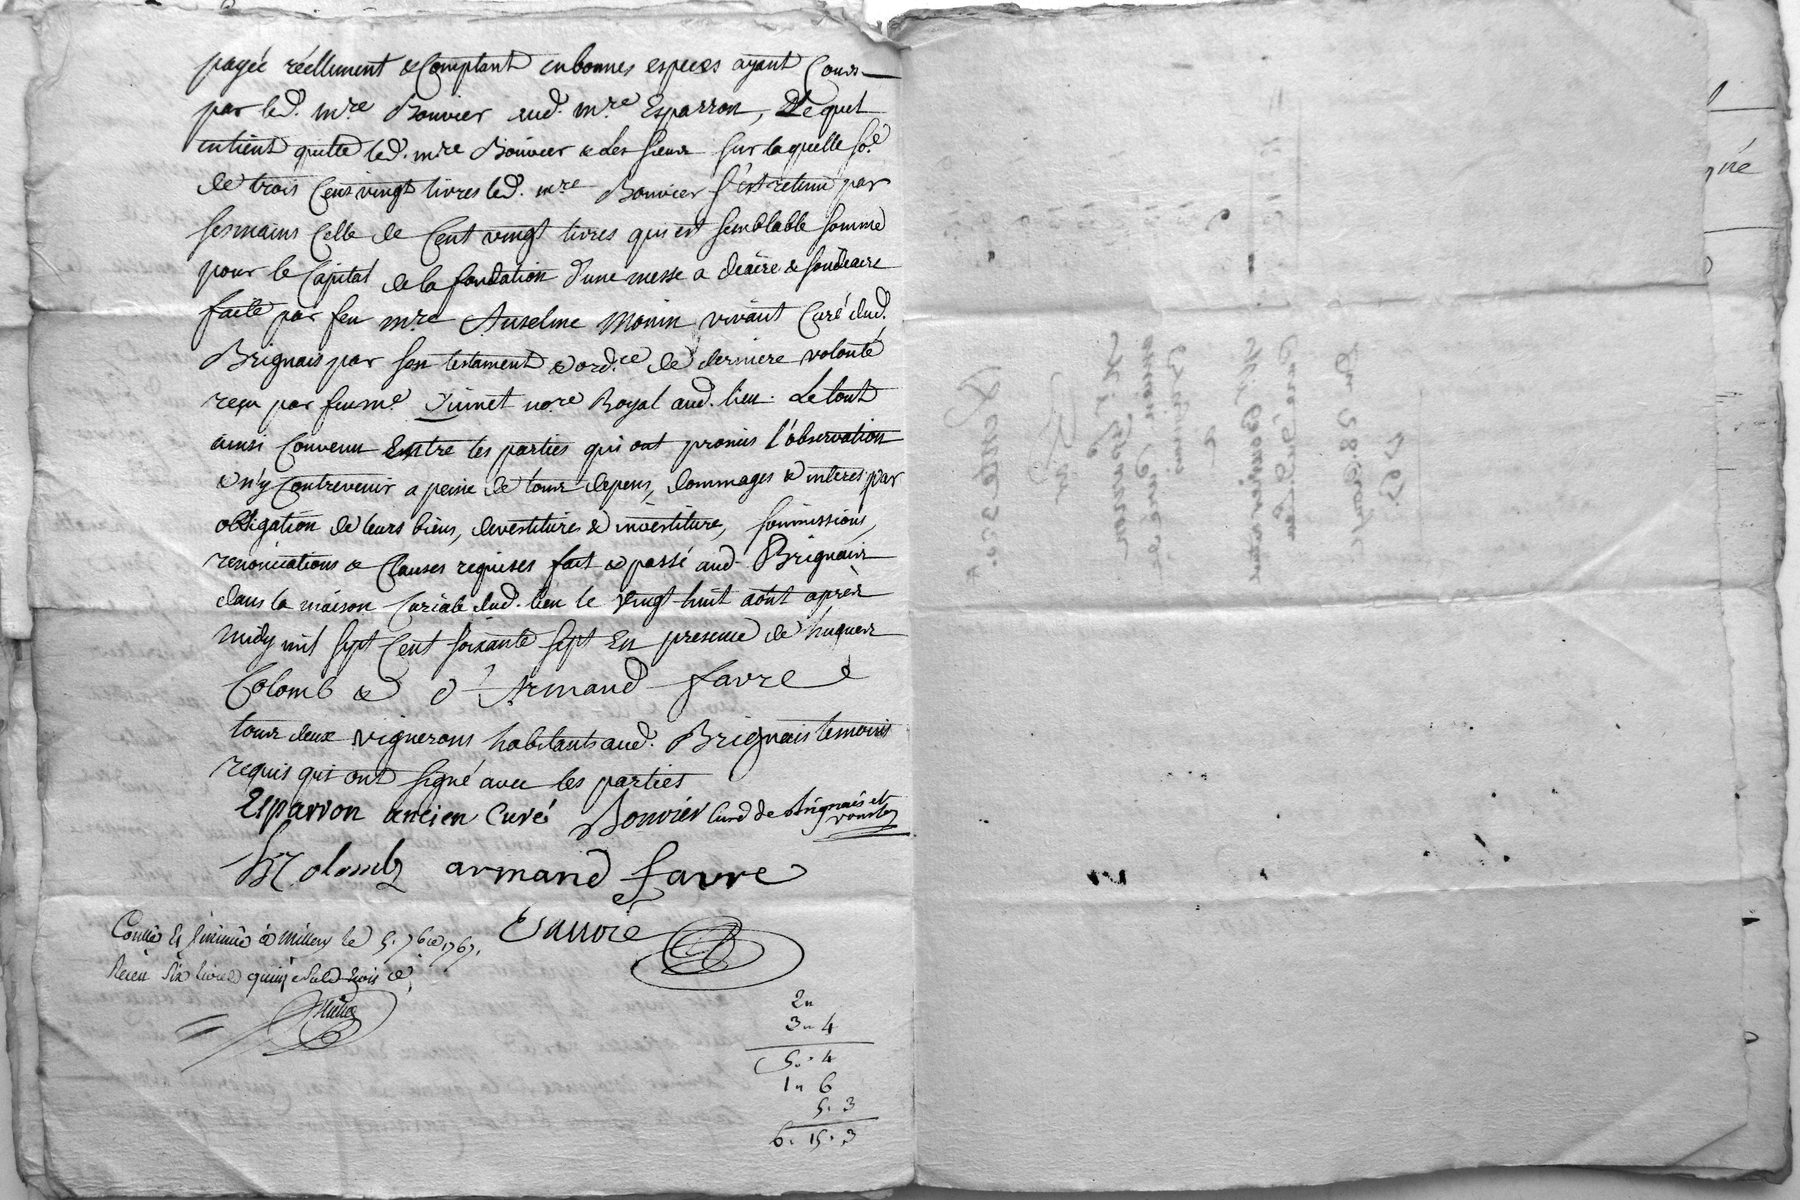 payée réellement & Comptant en bonnes especes ayant Cours
par led. mre Bouvier aud. mre Esparron, Lequel
entient quitte led. mre Bouvier & Les sieus sur laquelle so.e
de trois Cent vingt livres led. mre Bouvier s'est retenu par
ses mains Celle de Cent vingt livres qui est semblable somme
pour le Capital de la fondation d'une messe a diacre & soudiacre
faite par feu mre Anselme Monin vivant Curé dud.
Brignais par son testament & ord.ce de derniere volonté
reçu par feu me. Juinet no.re Royal aud. lieu. Le tout
ainsi Convenu Entre les parties qui ont promis l'observation
& n'y Contrevenir a peine de tous depens, dommages & interes par
obligation de leurs biens, devestiture & investiture, soumissions,
renonciations & Clauses requises fait & passé aud. Brignais
dans la maison Curiale dud. lieu le Vingt huit août après
midy mil sept Cent soixante sept En presence de hugues
Colomb & d'Armand favre
tous deux vignerons habitants aud. Brignais temoins
requis qui ont signé avec les parties
Esparron ancien Curé Bouvier Curé de Brignais et vourles
H Colomb armand favre
Contlé Et Insinué à Millery le 5. 7bre 1767.
Recu Six livres quinze sols trois d.
2 "
3 " 4
5 . 4
1 " 6
5 . 3
6 . 15 . 3